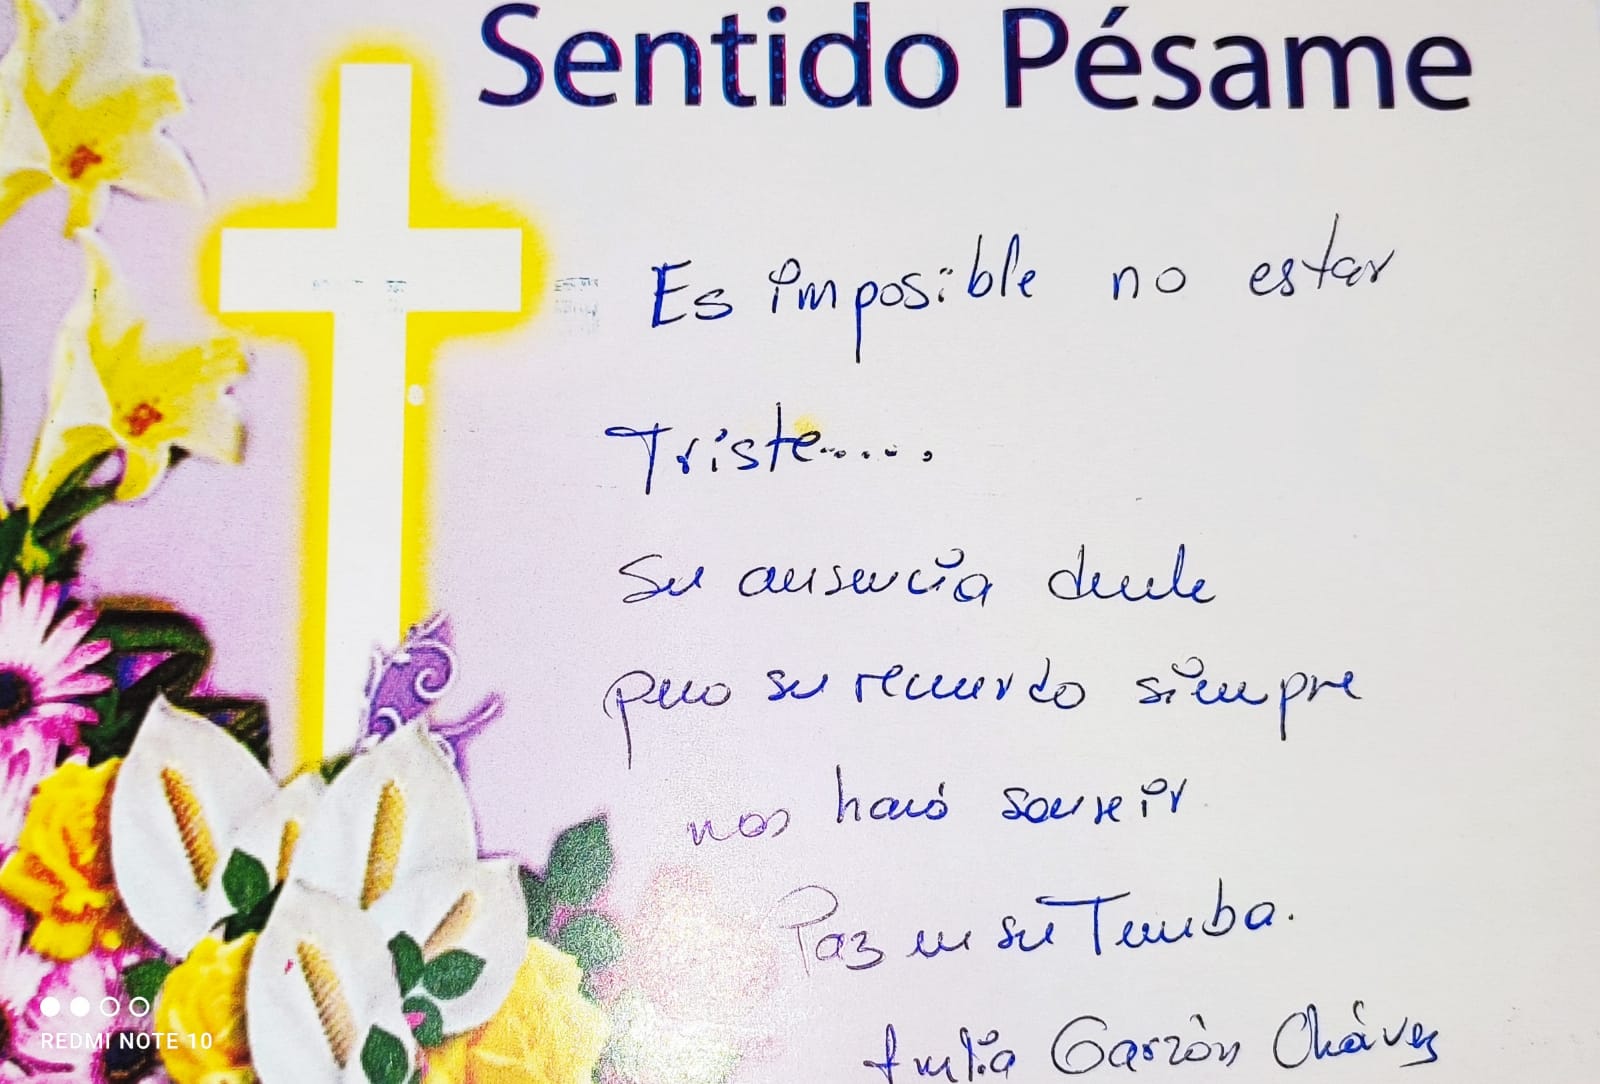 Sentido Pésame
Es imposible no estar
Triste.......
Su ausencia duele
pero su recuerdo siempre
nos hará sonreir
Paz en su Tumba.
Garzón Cháves
REDMI NOTE 10